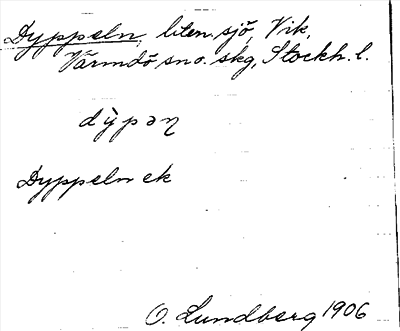 Dyppeln, liten sjö, Vik,
Värmdö sno. skg, Stockh. l.
dỳpəɳ
Dyppeln ek
O. Lundberg 1906